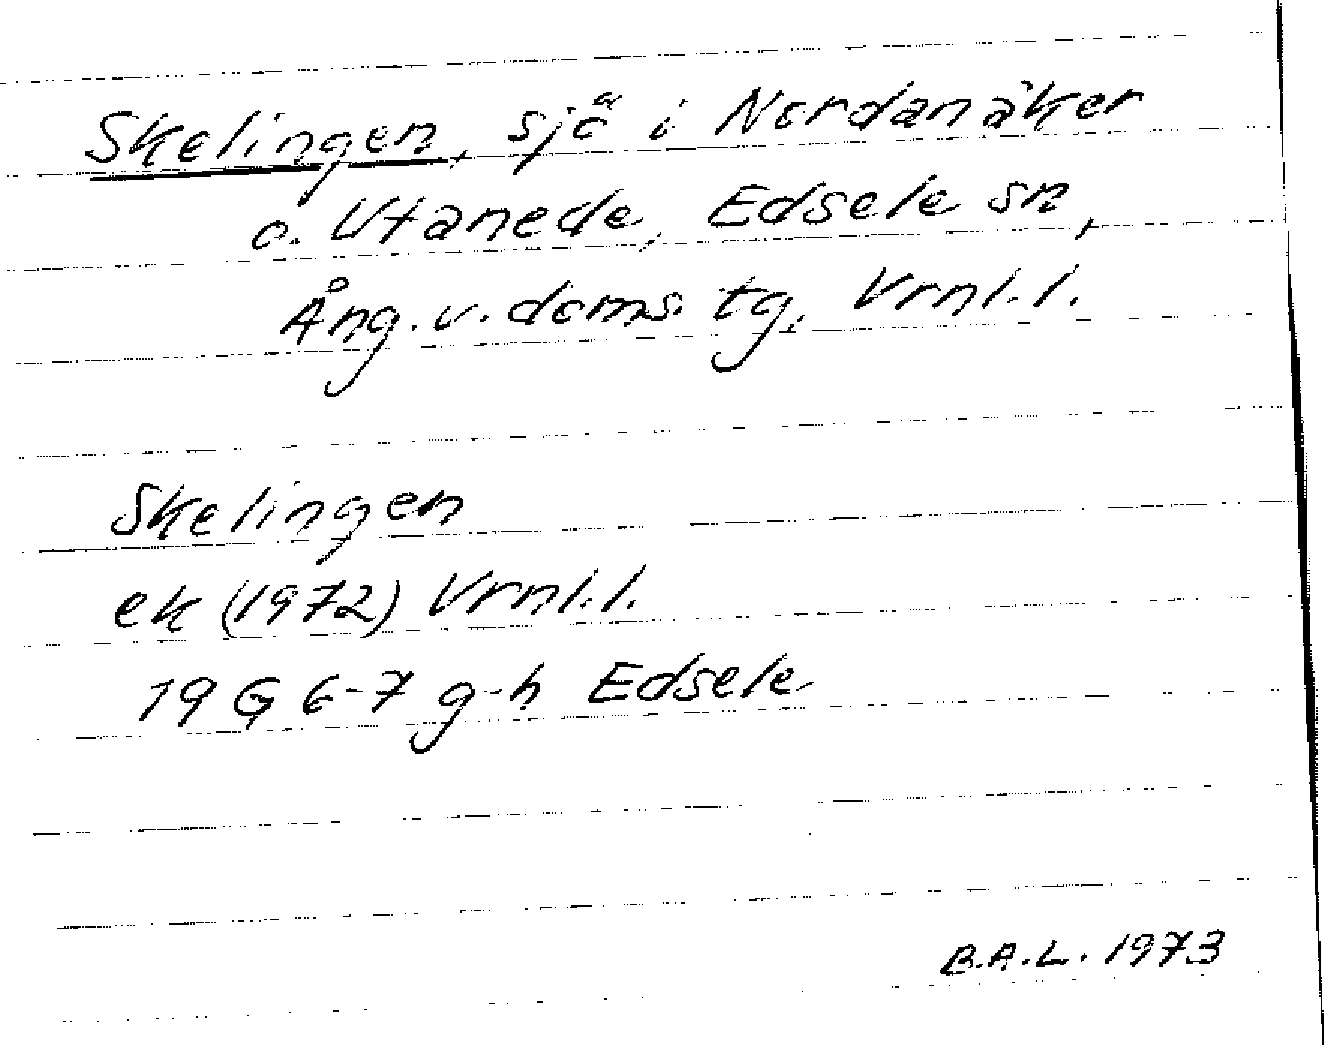 Skelingen, sjö i Nordanåker
o. Utanede, Edsele sn,
Ång. v. doms. tg. Vrnl. l.
Skelingen
ek (1972) Vrnl. l.
19 G 6-7 g-h Edsele
B.A.L. 1973